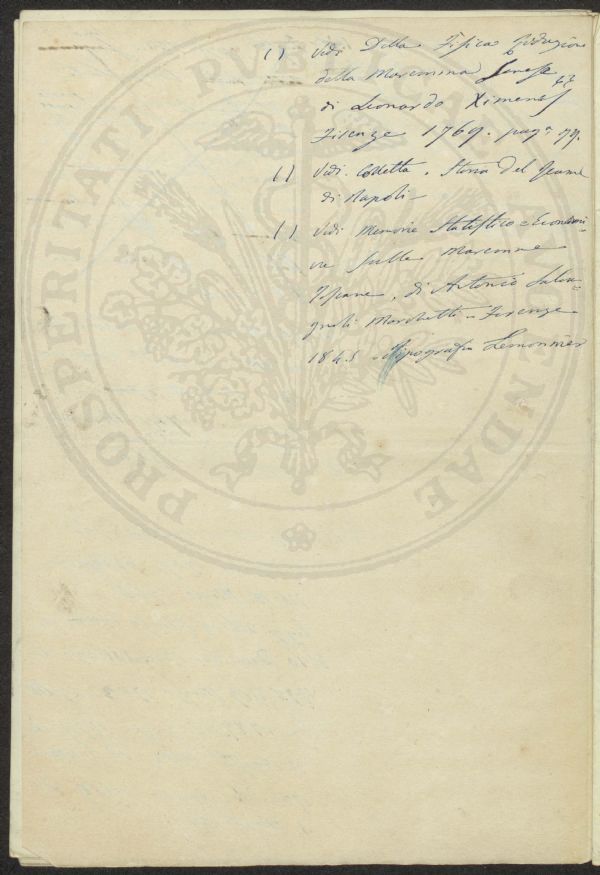 ( ) Vedi Della Fisica Riduzione
della Maremma Senese
di Leonardo Ximenes
Firenze 1769. pagª 79.
( ) Vedi Colletta, Storia del Reame
di Napoli -
( ) Vedi Memorie Statistico = Economi-
che sulle Maremme
Tosane, di Antonio Salva=
gnoli Marchetti - Firenze
184 - Tipografia Lemonnier
PROSPERITATI PUBLICAE AUGENDAE